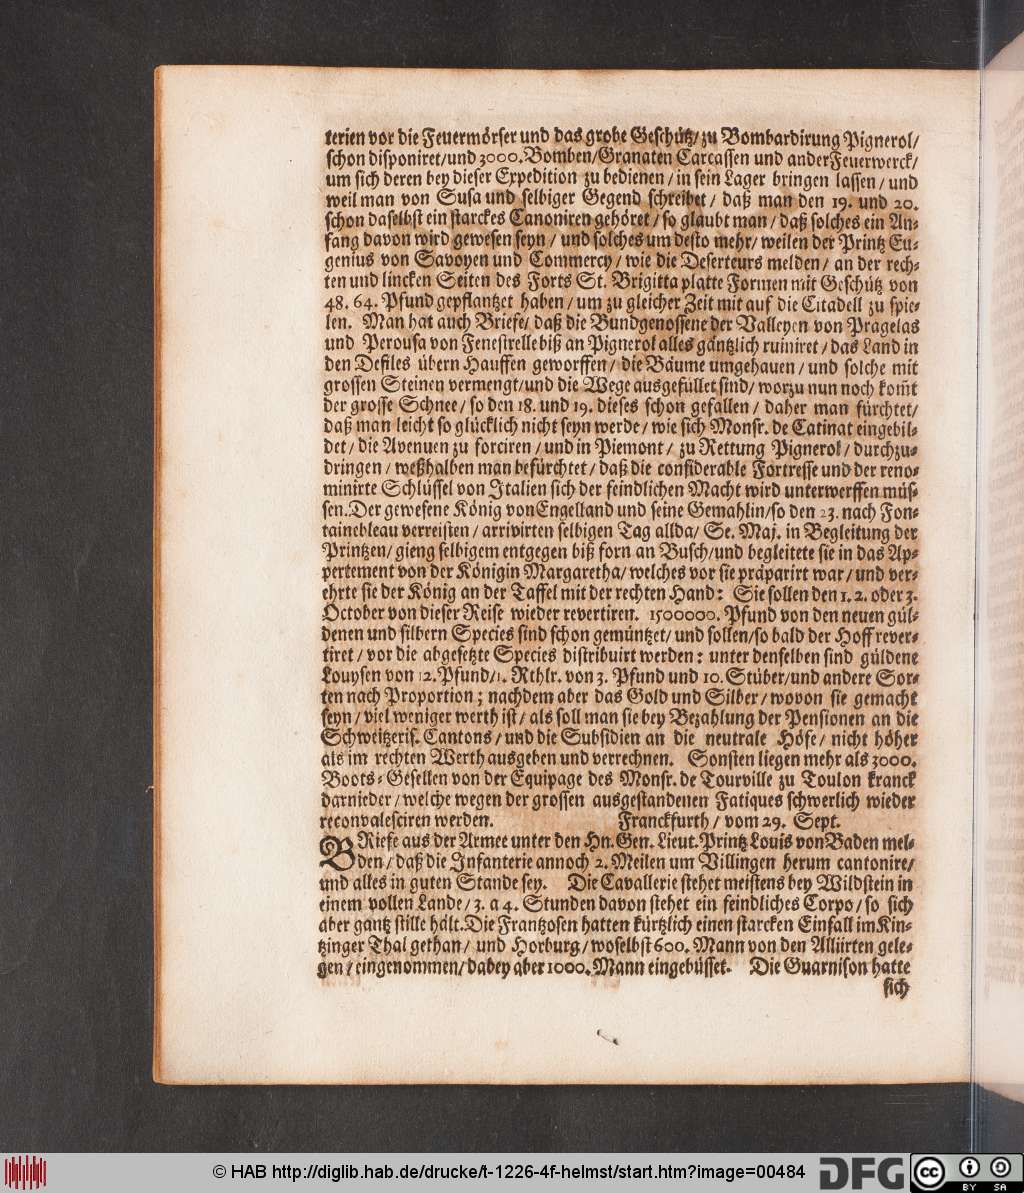 terien vor die Feuermörser und das grobe Geschütz/ zu Bombardirung Pignerol/
schon disponiret/und 3000. Bomben/Granaten Carcassen und ander Feuerwerck/
um sich deren bey dieser Expedition zu bedienen / in sein Lager bringen lassen / und
weil man von Susa und selbiger Gegend schreibet / daß man den 19. und 20.
schon daselbst ein starckes Canoniren gehöret / so glaubt man / daß solches ein An-
fang davon wird gewesen seyn / und solches um desto mehr/ weilen der Printz Eu-
genius von Savoyen und Commercy / wie die Deserteurs melden / an der rech-
ten und lincken Seiten des Forts St. Brigitta platte Formen mit Geschütz von
48. 64. Pfund gepflantzet haben / um zu gleicher Zeit mit auf die Citadell zu spie-
len. Man hat auch Briefe/ daß die Bundgenossene der Valleyen von Pragelas
und Perousa von Fenestrelle biß an Pignerol alles gäntzlich ruiniret / das Land in
den Defiles übern Hauffen geworffen / die Bäume umgehauen / und solche mit
grossen Steinen vermengt/und die Wege ausgefüllet sind/ worzu nun noch kom̃t
der grosse Schnee / so den 18. und 19. dieses schon gefallen / daher man fürchtet/
daß man leicht so glücklich nicht seyn werde / wie sich Monsr. de Catinat eingebil-
det / die Avenuen zu forciren / und in Piemont / zu Rettung Pignerol / durchzu-
dringen / weßhalben man befürchtet / daß die considerable Fortresse und der reno-
minirte Schlüssel von Italien sich der feindlichen Macht wird unterwerffen müs-
sen. Der gewesene König von Engelland und seine Gemahlin/so den 23. nach Fon-
tainebleau verreisten / arrivirten selbigen Tag allda/ Se. Maj. in Begleitung der
Printzen/ gieng selbigem entgegen biß forn an Busch/und begleitete sie in das Ap-
pertement von der Königin Margaretha/ welches vor sie präparirt war / und ver-
ehrte sie der König an der Taffel mit der rechten Hand: Sie sollen den 1. 2. oder 3.
October von dieser Reise wieder revertiren. 1500000. Pfund von den neuen gül-
denen und silbern Species sind schon gemüntzet/ und sollen/so bald der Hoff rever-
tiret / vor die abgesetzte Species distribuirt werden: unter denselben sind güldene
Louysen von 12. Pfund/1. Rthlr. von 3. Pfund und 10. Stüber/und andere Sor-
ten nach Proportion; nachdem aber das Gold und Silber/ wovon sie gemacht
seyn / viel weniger werth ist / als soll man sie bey Bezahlung der Pensionen an die
Schweitzeris. Cantons / und die Subsidien an die neutrale Höfe / nicht höher
als im rechten Werth ausgeben und verrechnen. Sonsten liegen mehr als 3000.
Boots-Gesellen von der Equipage des Monsr. de Tourville zu Toulon kranck
darnieder / welche wegen der grossen ausgestandenen Fatiques schwerlich wieder
reconvalesciren werden. Franckfurth / vom 29. Sept.
BRiefe aus der Armee unter den Hn. Gen. Lieut. Printz Louis von Baden mel-
den / daß die Infanterie annoch 2. Meilen um Villingen herum cantonire/
und alles in guten Stande sey. Die Cavallerie stehet meistens bey Wildstein in
einem vollen Lande / 3. a 4. Stunden davon stehet ein feindliches Corpo / so sich
aber gantz stille hält. Die Frantzosen hatten kürtzlich einen starcken Einfall im Kin-
tzinger Thal gethan / und Horburg / woselbst 600. Mann von den Alliirten gele-
gen / eingenommen / dabey aber 1000. Mann eingebüsset. Die Guarnison hatte
sich
© HAB http://diglib.hab.de/drucke/t-1226-4f-helmst/start.htm?image=00484
DFG
cc BY SA